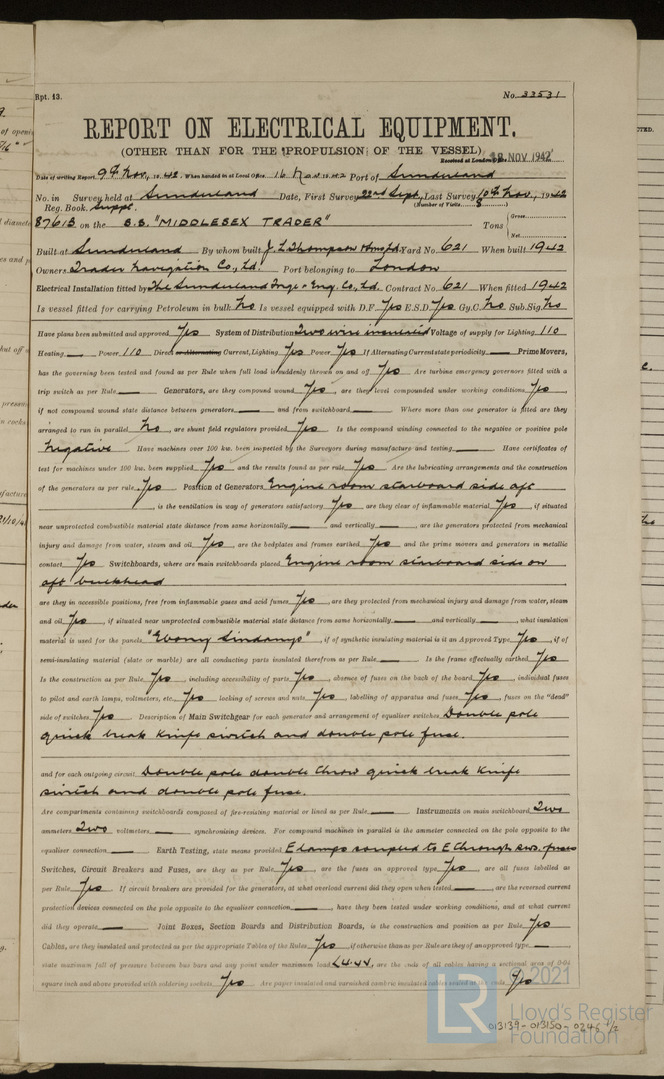 Rpt. 13.
No. 33531
REPORT ON ELECTRICAL EQUIPMENT.
(OTHER THAN FOR THE PROPULSION OF THE VESSEL)
Received at London Office 19 NOV 1942
Date of writing Report 9th Nov., 1942. When handed in at Local Office 16 Nov 1942 Port of Sunderland
No. in Survey held at Sunderland Date, First Survey 22nd Sept., Last Survey 10th Nov., 1942
Reg. Book. Suppl. (Number of Visits 5)
87613 on the S.S. "MIDDLESEX TRADER" Tons Gross
Net
Built at Sunderland By whom built J. L. Thompson & Sons Ltd. Yard No. 621 When built 1942
Owners Trader Navigation Co., Ltd. Port belonging to London
Electrical Installation fitted by The Sunderland Forge & Eng. Co., Ltd. Contract No. 621 When fitted 1942
Is vessel fitted for carrying Petroleum in bulk No Is vessel equipped with D.F. Yes E.S.D. Yes Gy.C. No Sub.Sig. No
Have plans been submitted and approved Yes System of Distribution Two wire insulated Voltage of supply for Lighting 110
Heating — Power 110 Direct or Alternating Current, Lighting Yes Power Yes If Alternating Current state periodicity — Prime Movers,
has the governing been tested and found as per Rule when full load is suddenly thrown on and off Yes Are turbine emergency governors fitted with a
trip switch as per Rule — Generators, are they compound wound Yes, are they level compounded under working conditions Yes,
if not compound wound state distance between generators — and from switchboard — Where more than one generator is fitted are they
arranged to run in parallel No, are shunt field regulators provided Yes Is the compound winding connected to the negative or positive pole
Negative Have machines over 100 kw. been inspected by the Surveyors during manufacture and testing — Have certificates of
test for machines under 100 kw. been supplied Yes and the results found as per rule Yes Are the lubricating arrangements and the construction
of the generators as per rule Yes Position of Generators Engine room starboard side aft
, is the ventilation in way of generators satisfactory Yes, are they clear of inflammable material Yes, if situated
near unprotected combustible material state distance from same horizontally — and vertically —, are the generators protected from mechanical
injury and damage from water, steam and oil Yes, are the bedplates and frames earthed Yes and the prime movers and generators in metallic
contact Yes Switchboards, where are main switchboards placed Engine room starboard side on
aft bulkhead
are they in accessible positions, free from inflammable gases and acid fumes Yes, are they protected from mechanical injury and damage from water, steam
and oil Yes, if situated near unprotected combustible material state distance from same horizontally — and vertically —, what insulation
material is used for the panels "Ebony Sindanyo", if of synthetic insulating material is it an Approved Type Yes, if of
semi-insulating material (slate or marble) are all conducting parts insulated therefrom as per Rule — Is the frame effectually earthed Yes
Is the construction as per Rule Yes, including accessibility of parts Yes, absence of fuses on the back of the board Yes, individual fuses
to pilot and earth lamps, voltmeters, etc. Yes locking of screws and nuts Yes, labelling of apparatus and fuses Yes, fuses on the "dead"
side of switches Yes Description of Main Switchgear for each generator and arrangement of equaliser switches Double pole
quick break knife switch and double pole fuse.
and for each outgoing circuit Double pole double throw quick break knife
switch and double pole fuse.
Are compartments containing switchboards composed of fire-resisting material or lined as per Rule — Instruments on main switchboard Two
ammeters Two voltmeters — synchronising devices. For compound machines in parallel is the ammeter connected on the pole opposite to the
equaliser connection — Earth Testing, state means provided E lamps coupled to E through sws. fuses
Switches, Circuit Breakers and Fuses, are they as per Rule Yes, are the fuses an approved type Yes, are all fuses labelled as
per Rule Yes If circuit breakers are provided for the generators, at what overload current did they open when tested —, are the reversed current
protection devices connected on the pole opposite to the equaliser connection —, have they been tested under working conditions, and at what current
did they operate — Joint Boxes, Section Boards and Distribution Boards, is the construction and position as per Rule Yes
Cables, are they insulated and protected as per the appropriate Tables of the Rules Yes, if otherwise than as per Rule are they of an approved type —
state maximum fall of pressure between bus bars and any point under maximum load <4.4V, are the ends of all cables having a sectional area of 0.04
square inch and above provided with soldering sockets Yes Are paper insulated and varnished cambric insulated cables sealed at the ends Yes
© 2021
LR
Lloyd's Register
Foundation
013139-013150-0246 1/2